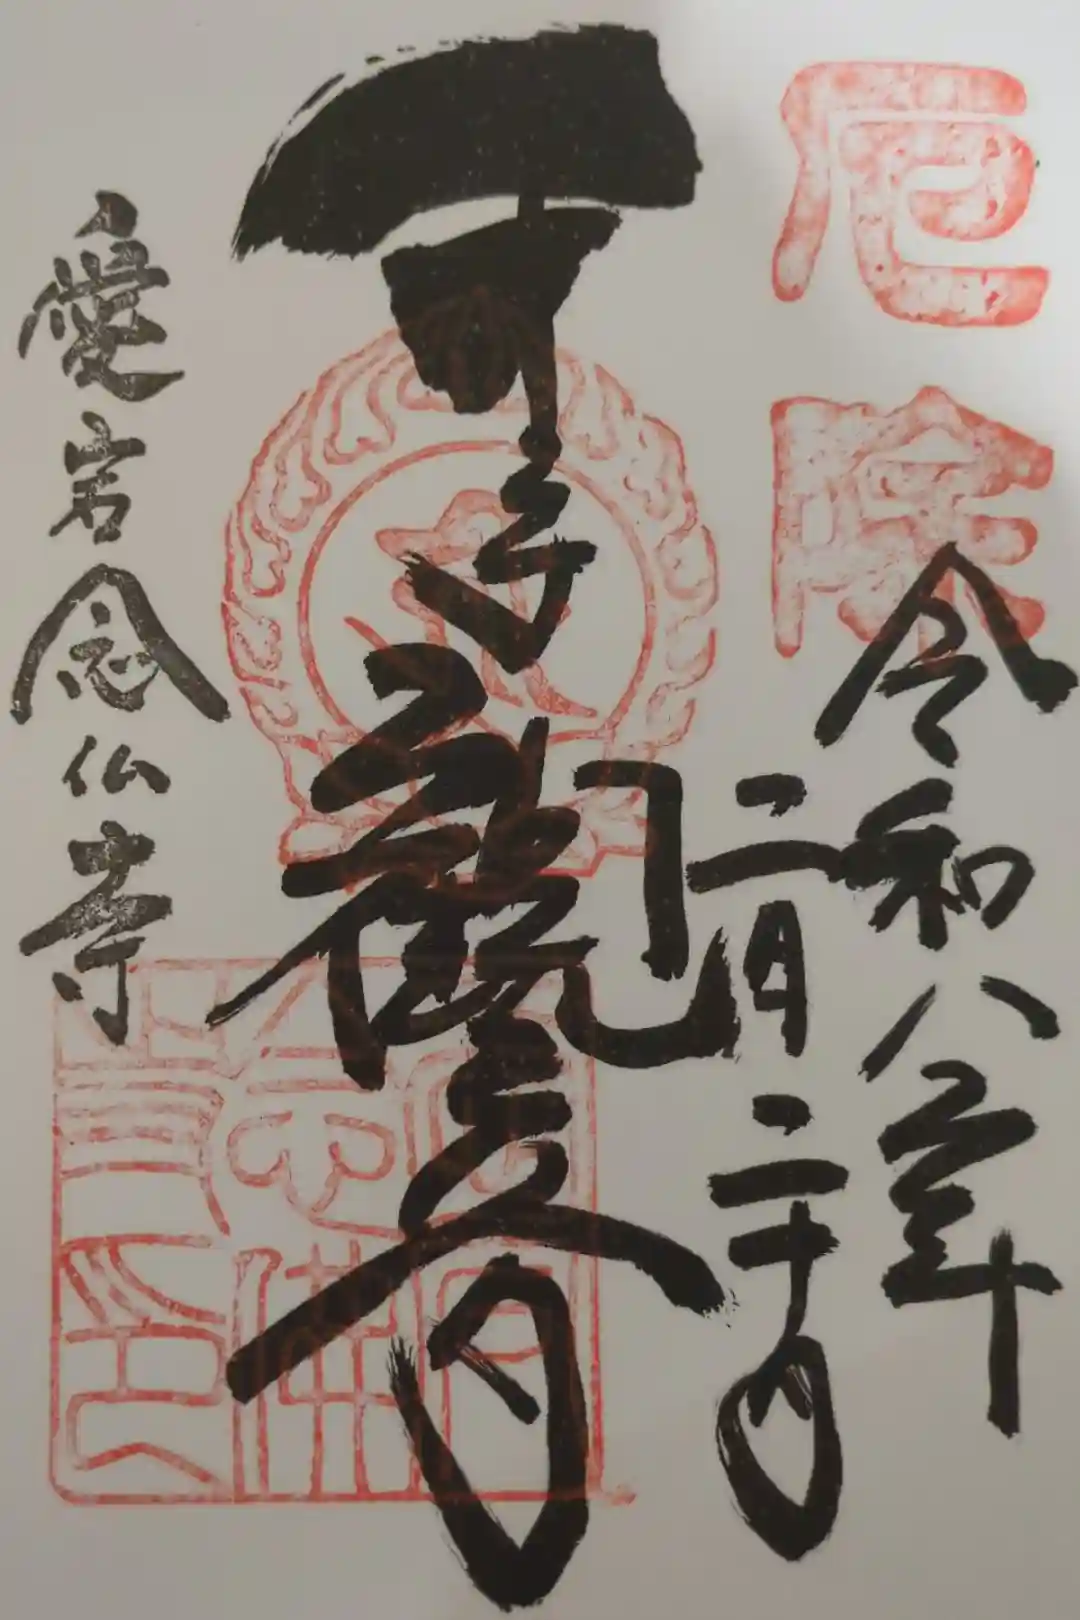 厄除
令和八年
二月二十二日
千手観音
愛宕念仏寺